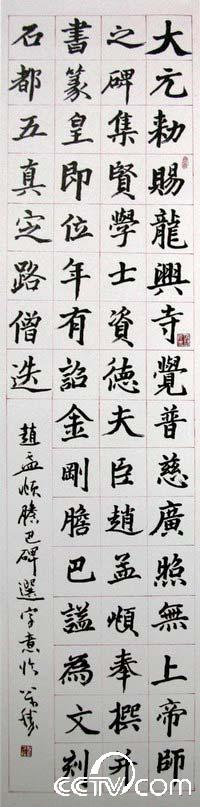 大元勑賜龍興寺覺普慈廣照無上帝師
之碑集賢學士資德夫臣趙孟頫奉撰并
書篆皇即位年有詔金剛膽巴謚為文刻
石都五真定路僧迭
趙孟頫膽巴碑選字意臨
CCTV.com